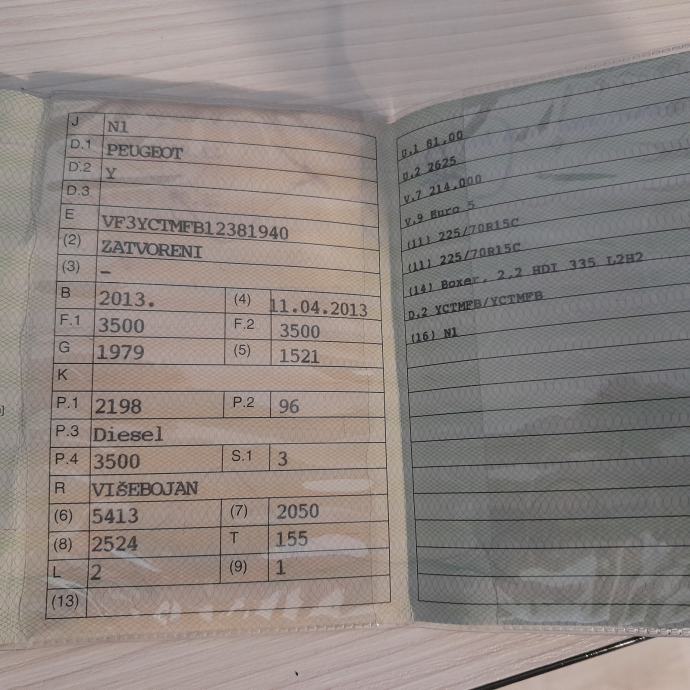 J N1
D.1 PEUGEOT
D.2 Y
D.3
E VF3YCTMFB12381940
(2) ZATVORENI
(3) –
B 2013. (4) 11.04.2013
F.1 3500 F.2 3500
G 1979 (5) 1521
K
P.1 2198 P.2 96
P.3 Diesel
P.4 3500 S.1 3
R VIŠEBOJAN
(6) 5413 (7) 2050
(8) 2524 T 155
L 2 (9) 1
(13)
U.1 81,00
U.2 2625
V.7 214,000
V.9 Euro 5
(11) 225/70R15C
(11) 225/70R15C
(14) Boxer, 2.2 HDI 335 L2H2
D.2 YCTMFB/YCTMFB
(16) N1